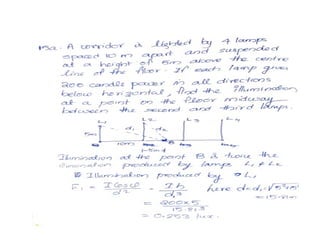 15a. A corridor is lighted by 4 lamps
spaced 10 m apart and suspended
at a height of 5m above the centre
line of the floor. If each lamp gives
200 candle power in all directions
below horizontal, find the illumination
at a point on the floor midway
between the second and third lamps.
L1 L2 L3 L4
5m d1 d2
10m B
Illumination at the point B is twice the
illumination produced by lamps L1 & L2
Illumination produced by L1
E1 = I cosφ / d² = I h / d1³ here d = d1
= 200×5 / 15.8³ = 15.8m
= 0.253 lux.